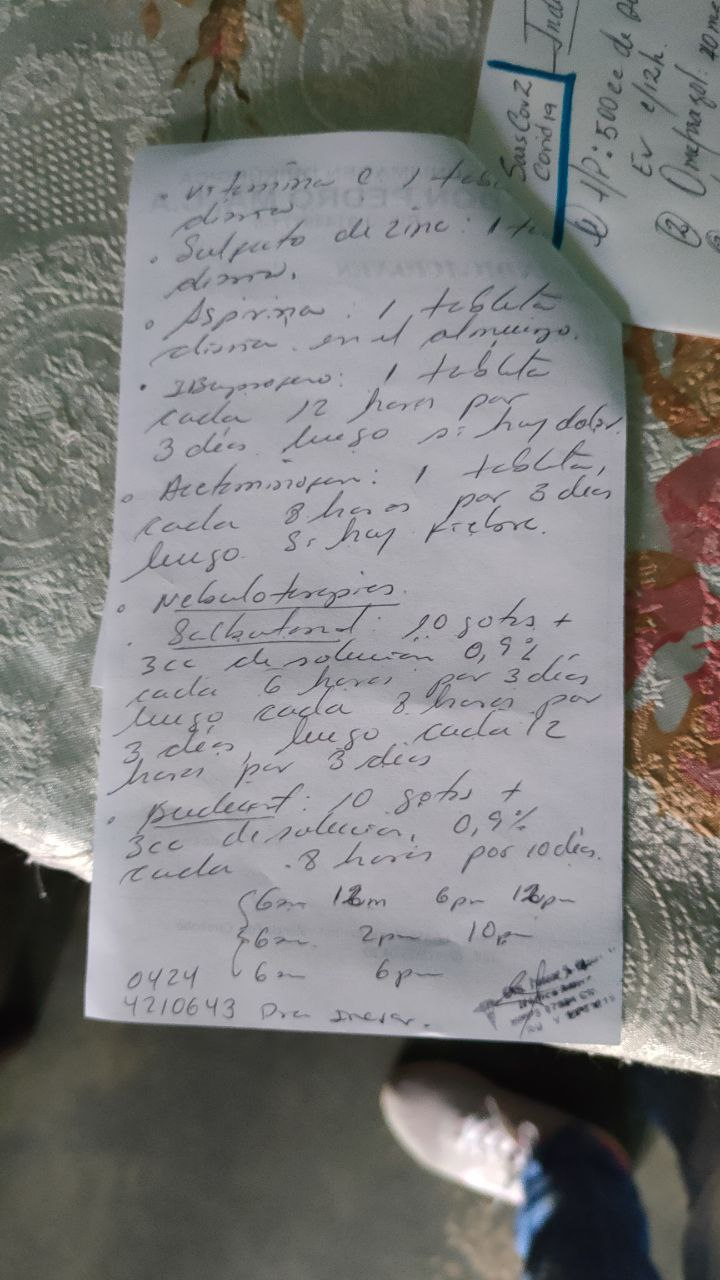 • Vitamina C 1 tab
diaria
• Sulfato de zinc: 1 ta
diaria.
• Aspirina: 1 tableta
diaria en el almuerzo.
• Ibuprofeno: 1 tableta
cada 12 horas por
3 días luego si hay dolor.
• Acetaminofen: 1 tableta,
cada 8 horas por 3 días
luego si hay fiebre.
• Nebuloterapias.
• Salbutamol: 10 gotas +
3cc de solución 0,9%
cada 6 horas por 3 días
luego cada 8 horas por
3 días, luego cada 12
horas por 3 días
• Budecort: 10 gotas +
3cc de solución, 0,9%
cada 8 horas por 10 días.
6am 12m 6pm 12pm
6am 2pm 10pm
6am 6pm
0424
4210643 Dra
SarsCov2
Covid 19
Ind
① H/P: 500cc de
EV c/12h.
② Omeprazol: 40mg
DON PEDRO